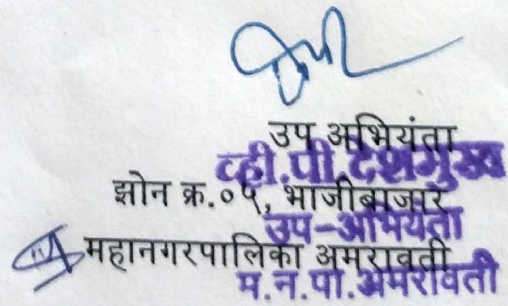 उप अभियंता
व्ही.पी.देशमुख
झोन क्र.०५, भाजीबाजार
उप-अभियंता
महानगरपालिका अमरावती
म.न.पा.अमरावती